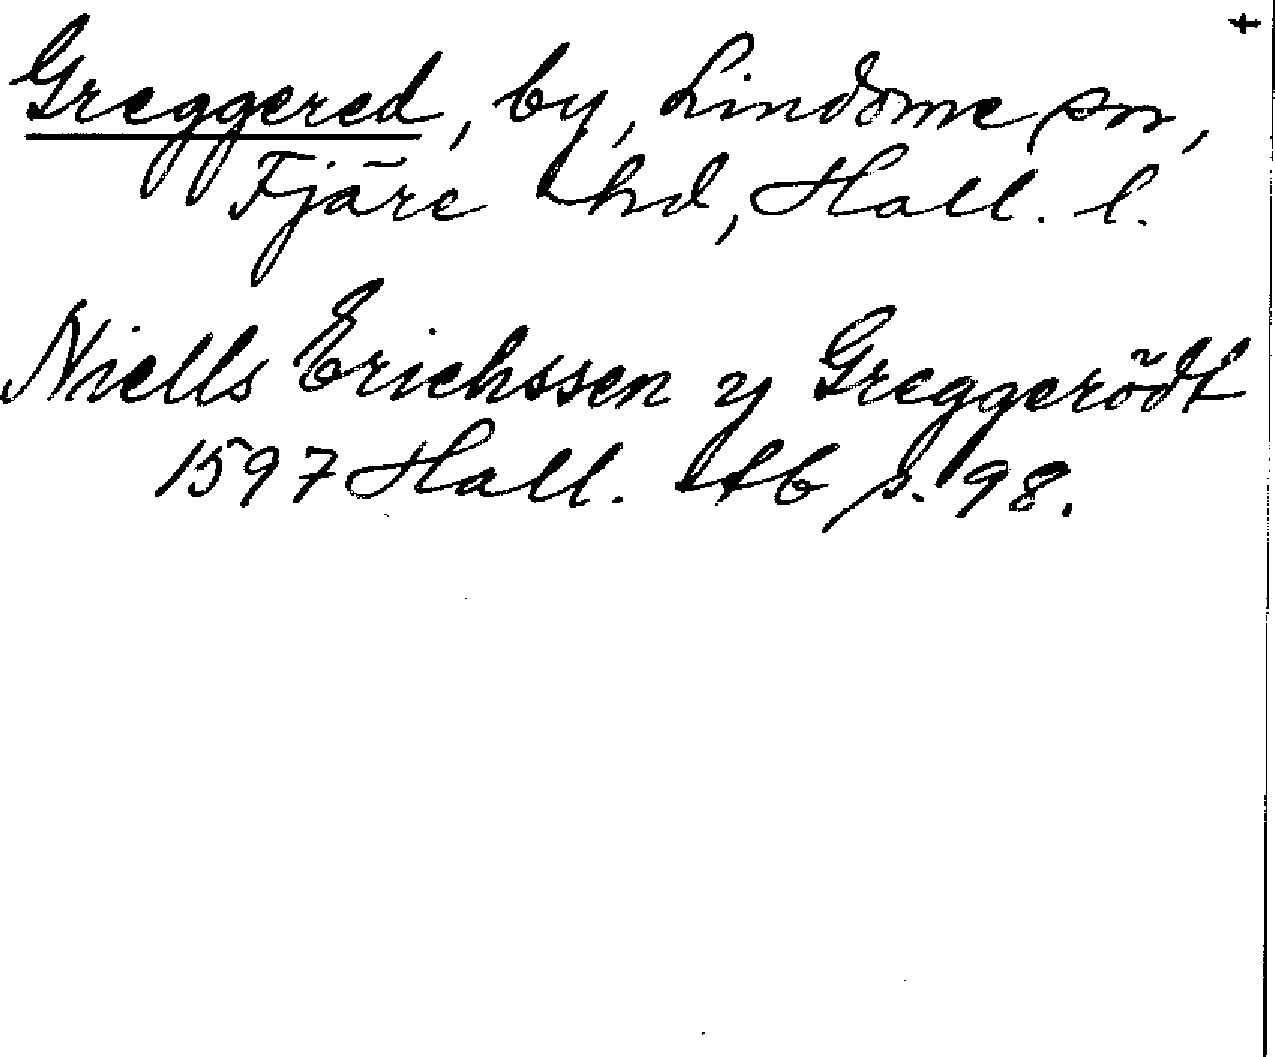 Greggered, by, Lindome sn,
Fjäre hd, Hall. l.
Niells Erichssen y Greggerödt
1597 Hall. Ab s. 98.